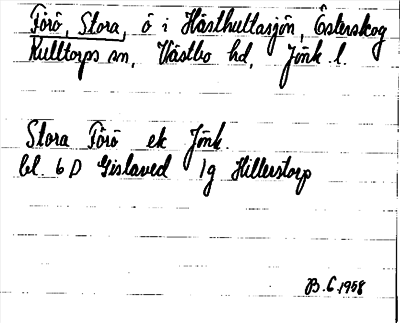 Förö, Stora, ö i Hästhultasjön, Österskog
Kulltorps sn, Västbo hd, Jönk. l.
Stora Förö ek Jönk.
bl. 6 D Gislaved 1g Hillerstorp
B. C. 1958